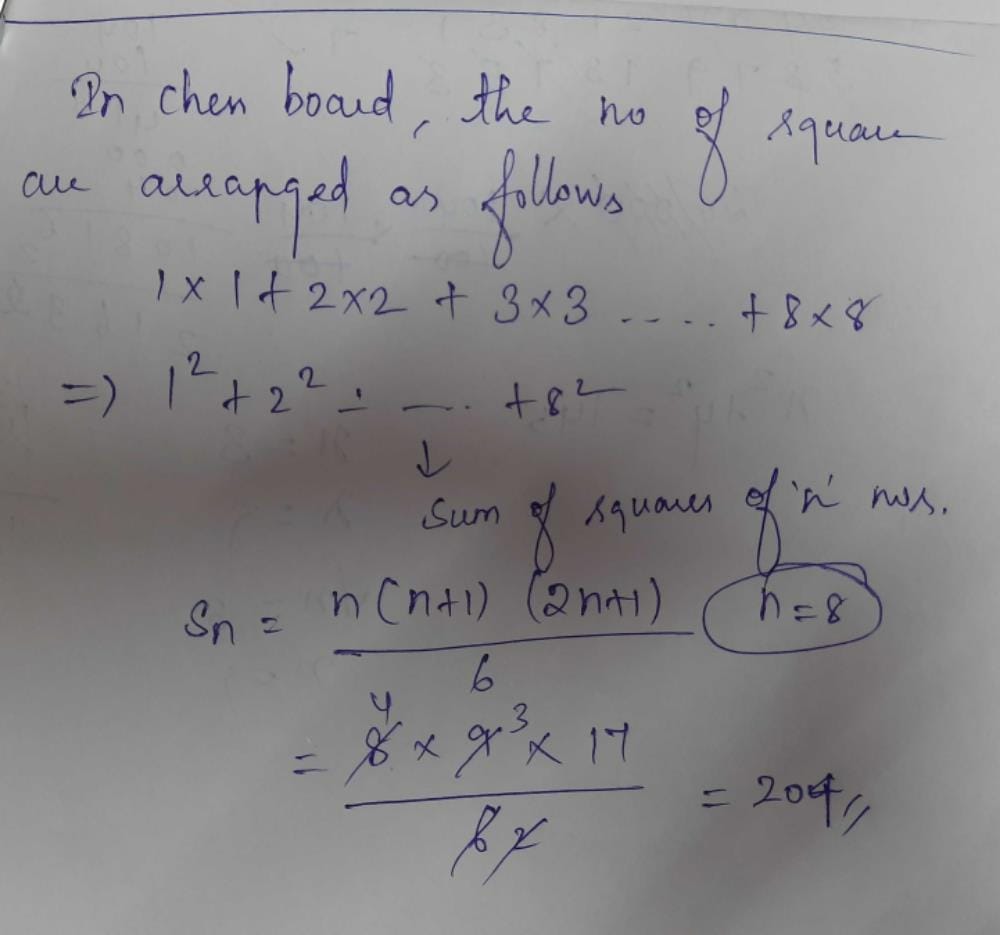 In chess board, the no of square
are arranged as follows
1 × 1 + 2 × 2 + 3 × 3 ..... + 8 × 8
=) 1² + 2² ..... + 8²
↓
Sum of squares of 'n' nos.
Sn = n(n+1) (2n+1) / 6 n = 8
= 8 4 × 9 3 × 17 / 6 2 = 204 //